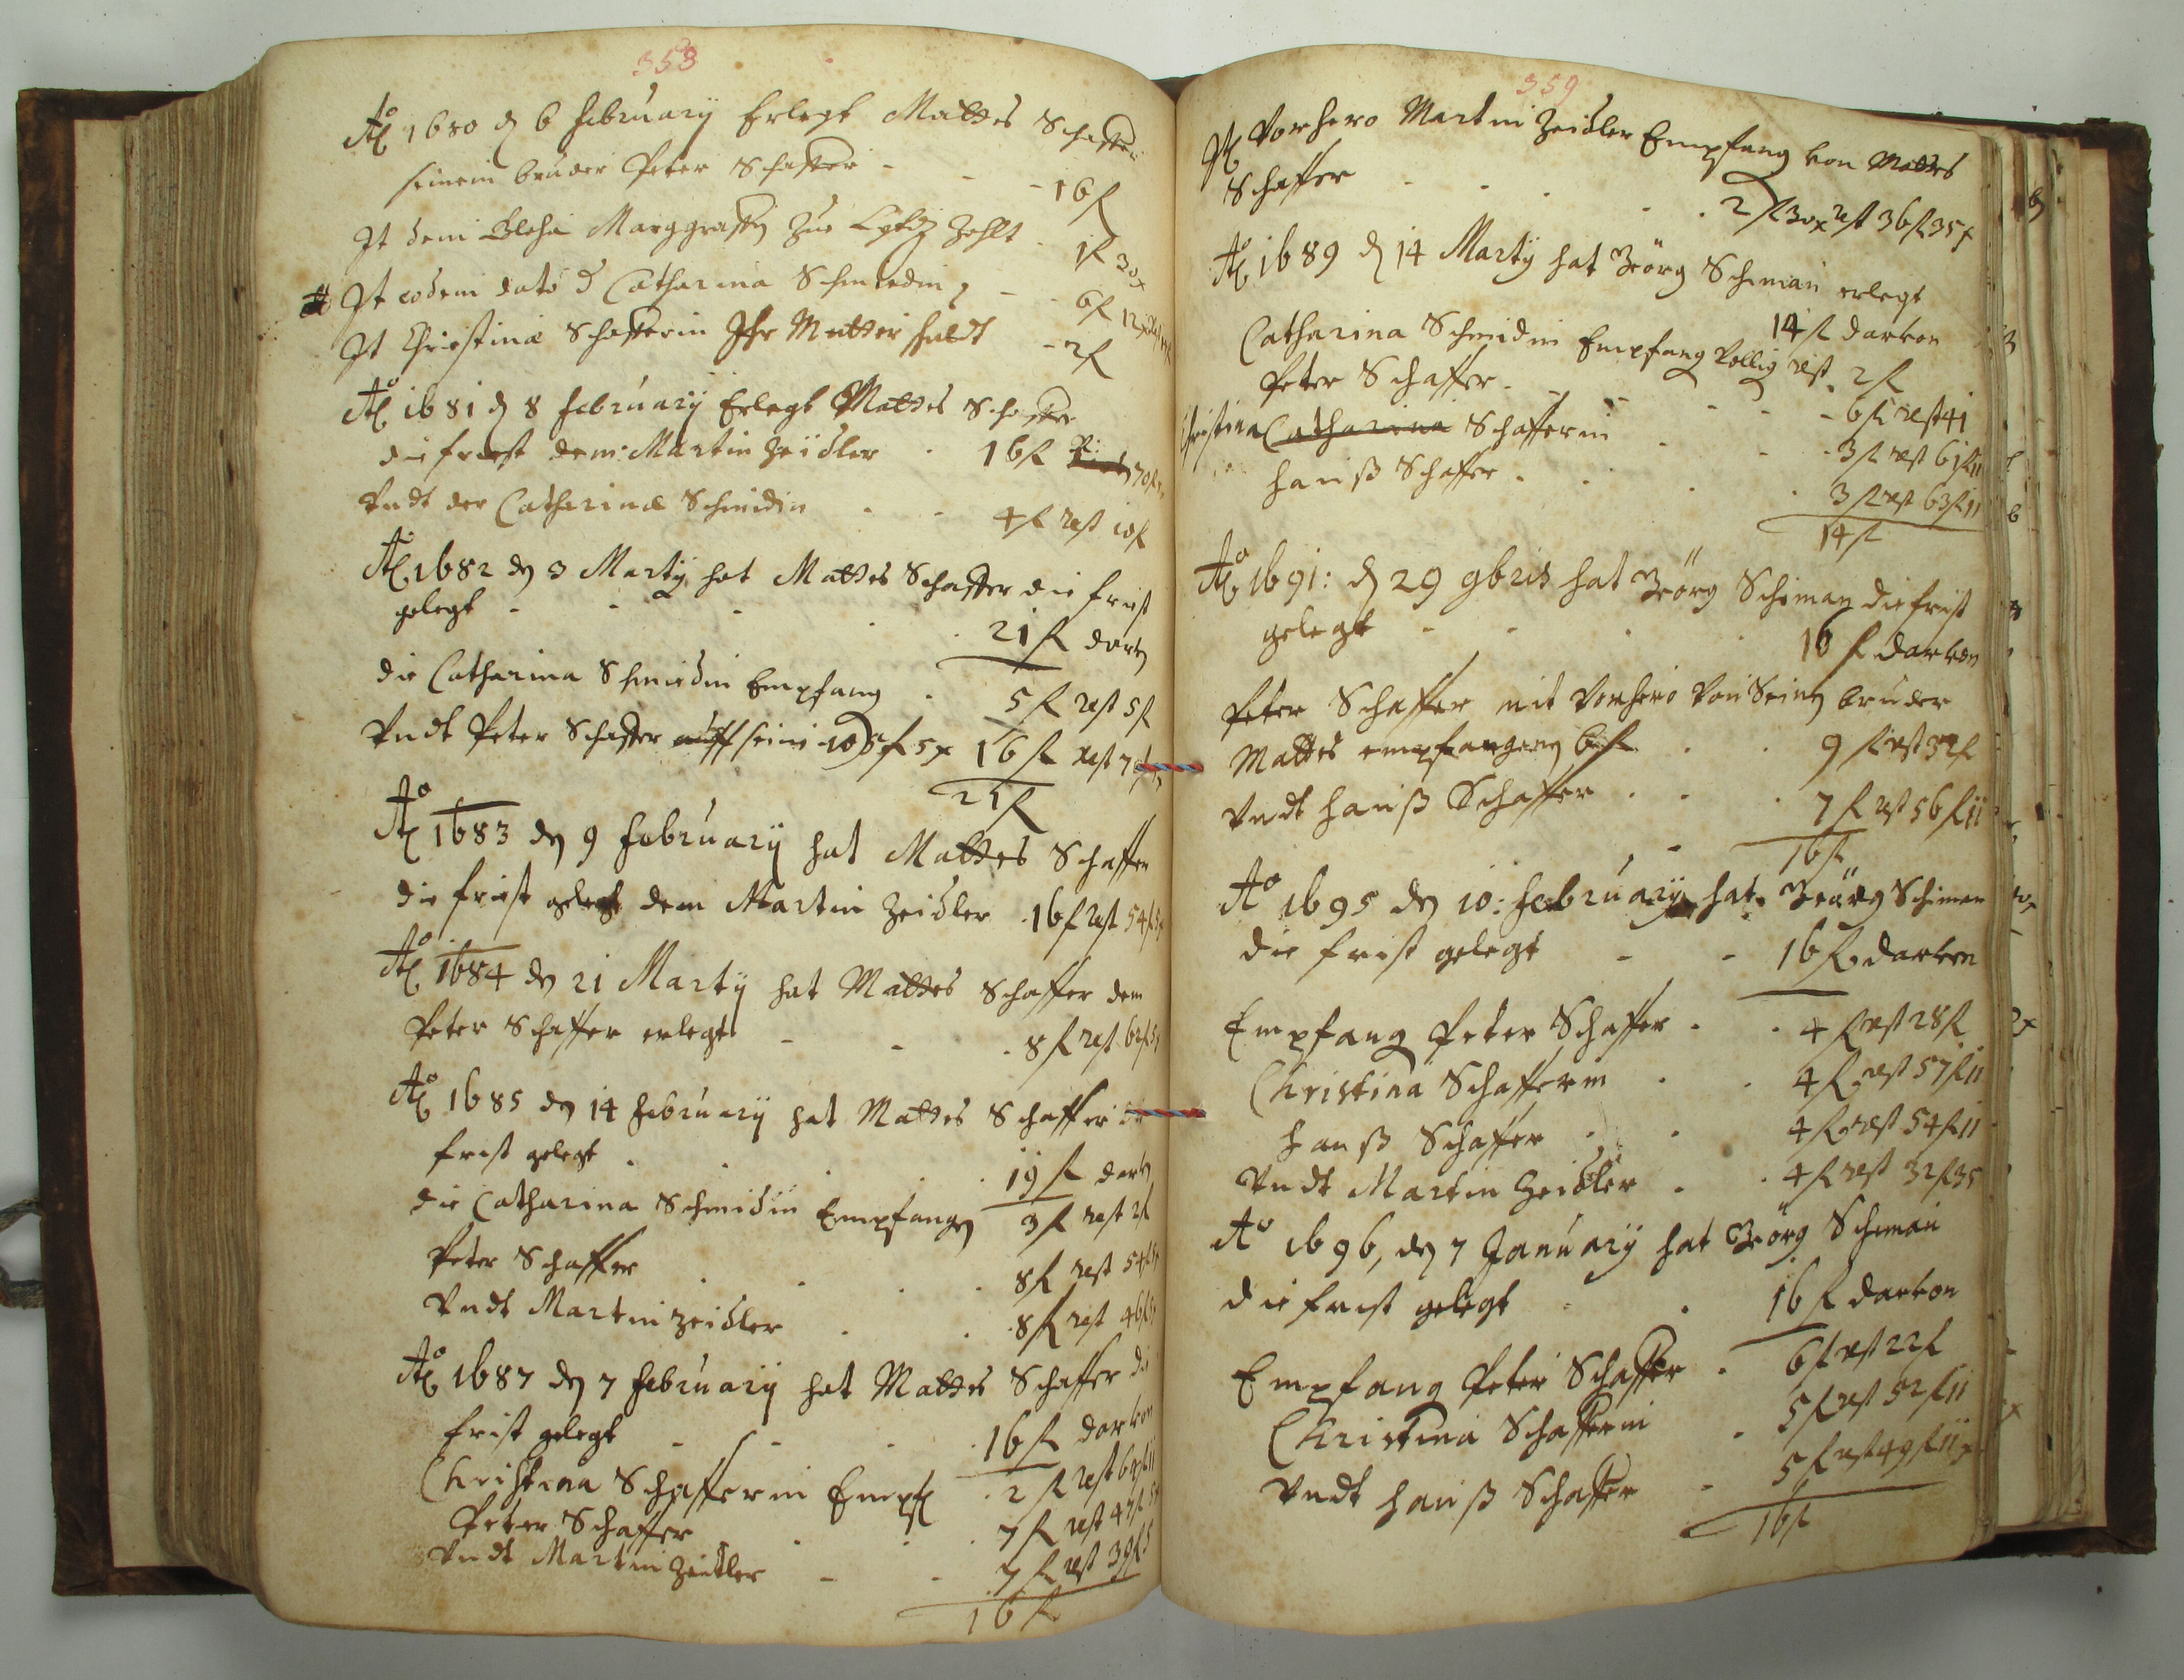 353
Ao 1680 d 6 February Erlegt Mattes Schaffer
seinem bruder Peter Schaffer - - - 16 f
It dem Blesi Marggraffen zue zehlt - 1 f 30 x
It eodem dato d Catharina Schmiedin - - 6 f 12 x
It Christina Schafferin Ihr Mutter - 2 f
Ao 1681 d 8 February Erlegt Mattes Schaffer
die frist dem Martin Zeidler - 16 f R: 70 f
Vndt der Catharina Schmidin - - 4 f rest 10 f
Ao 1682 den 3 Marty hat Mattes Schaffer die frist
gelegt - - - - - 21 f darvon
die Catharina Schmiedin Empfang - 5 f rest 5 f
Vndt Peter Schaffer auff seine 108 f 5 x 16 f rest
21 f
Ao 1683 den 9 February hat Mattes Schaffer
die frist gelegt dem Martin Zeidler . 16 f rest 54 f 5 x
Ao 1684 den 21 Marty hat Mattes Schaffer dem
Peter Schaffer erlegt - - . 8 f rest 62 f 5
Ao 1685 den 14 February hat Mattes Schaffer die
frist gelegt . . . . 19 f darvon
die Catharina Schmidin Empfangen 3 f rest 2 f
Peter Schaffer . . . . 8 f rest 54 f 5
Vndt Martin Zeidler . . 8 f rest 46 f 5
Ao 1687 den 7 February hat Mattes Schaffer die
frist gelegt - - . . 16 f darvon
Christina Schafferin Empf . 2 f rest 64 f 11
Peter Schaffer . . . 7 f rest 47 f 5
Vndt Martin Zeidler - - 7 f rest 39 f 5
16 f
359
It Vorhero Martin Zeidler Empfang von Mattes
Schaffer - - - - . 2 f 30 x rest 36 f 35 x
Ao 1689 d 14 Marty hat Georg Schiman erlegt
14 f darvon
Catharina Schmidin Empfang Vollig rest . 2 f
Peter Schaffer . - - - - - 6 f rest 41
Christina Catharina Schafferin . . - 3 f rest 61 f 11
Hanß Schaffer . . . . 3 f rest 63 f 11
14 f
Ao 1691: d 29 9bris hat Georg Schiman die frist
gelegt - - . . 16 f darvon
Peter Schaffer mit Vorhero Von Seinen bruder
Mattes empfangenen 6 f . . 9 f rest 32 f
Vndt Hanß Schaffer . . . 7 f rest 56 f 11
16 f
Ao 1695 den 10: February hat Georg Schiman
die frist gelegt - - 16 f darvon
Empfang Peter Schaffer . . 4 f rest 28 f
Christina Schafferin . . 4 f rest 57 f 11
Hanß Schaffer . . 4 f rest 54 f 11
Vndt Martin Zeidler . . 4 f rest 32 f 35
Ao 1696, den 7 January hat Georg Schiman
die frist gelegt - . 16 f darvon
Empfang Peter Schaffer . 6 f rest 22 f
Christina Schafferin . 5 f rest 52 f 11
Vndt Hanß Schaffer - 5 f rest 49 f 11 x
16 f